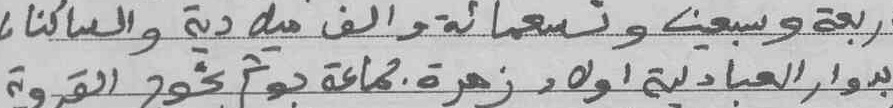 ربعة وسبعين وتسعمائة والف ميلادية والساكنا
بدوار العبادلية اولاد زهرة. جماعة بوشخور القروية